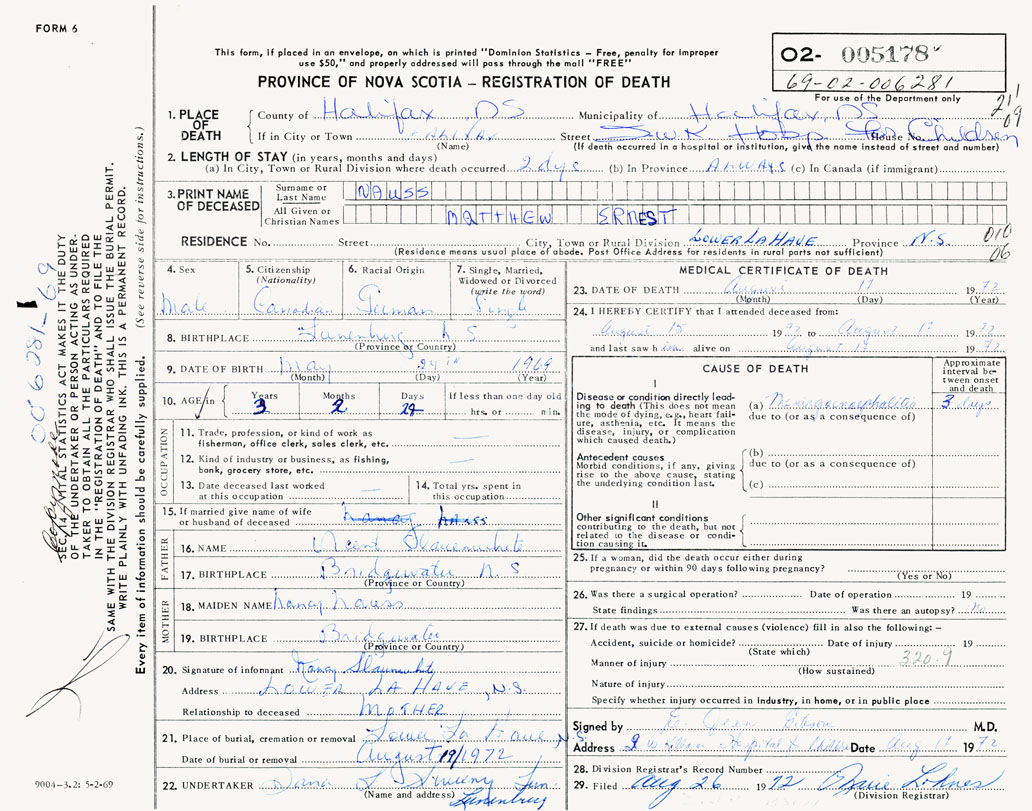 FORM 6
This form, if placed in an envelope, on which is printed "Dominion Statistics – Free, penalty for improper
use $50," and properly addressed will pass through the mail "FREE"
PROVINCE OF NOVA SCOTIA – REGISTRATION OF DEATH
02- 005178
69-02-006281
For use of the Department only
1. PLACE OF DEATH
County of Halifax, NS Municipality of Halifax, NS
If in City or Town HALIFAX Street Hosp For Children House No.
(Name) (If death occurred in a hospital or institution, give the name instead of street and number)
2. LENGTH OF STAY (in years, months and days)
(a) In City, Town or Rural Division where death occurred 2 dys (b) In Province ALWAYS (c) In Canada (if immigrant)
3. PRINT NAME OF DECEASED
Surname or Last Name NAUSS
All Given or Christian Names MATTHEW ERNEST
RESIDENCE No. Street City, Town or Rural Division LOWER LAHAVE Province N.S.
(Residence means usual place of abode. Post Office Address for residents in rural parts not sufficient)
010
06
4. Sex
Male
5. Citizenship (Nationality)
Canadian
6. Racial Origin
German
7. Single, Married, Widowed or Divorced (write the word)
Single
8. BIRTHPLACE Lunenburg N S
(Province or Country)
9. DATE OF BIRTH May 24th 1969
(Month) (Day) (Year)
10. AGE in Years 3 Months 2 Days 24 If less than one day old hrs. or min.
OCCUPATION
11. Trade, profession, or kind of work as
fisherman, office clerk, sales clerk, etc. —
12. Kind of industry or business, as fishing,
bank, grocery store, etc. —
13. Date deceased last worked
at this occupation —
14. Total yrs. spent in
this occupation
15. If married give name of wife
or husband of deceased Nancy Nauss
FATHER
16. NAME Slauenwhite
17. BIRTHPLACE Bridgwater N. S
(Province or Country)
MOTHER
18. MAIDEN NAME Nancy Nauss
19. BIRTHPLACE Bridgwater
(Province or Country)
20. Signature of informant Nancy Slauenwhite
Address LOWER LA HAVE, N.S.
Relationship to deceased MOTHER
21. Place of burial, cremation or removal Lower La Have, N.S.
Date of burial or removal August 19/1972
22. UNDERTAKER Dana L Sweeny
(Name and address) Lunenburg
MEDICAL CERTIFICATE OF DEATH
23. DATE OF DEATH August 17 1972
(Month) (Day) (Year)
24. I HEREBY CERTIFY that I attended deceased from:
August 15 1972 to August 17 1972
and last saw him alive on August 17 1972
CAUSE OF DEATH
Approximate interval between onset and death
I
Disease or condition directly leading to death (This does not
mean the mode of dying, e.g., heart failure, asthenia, etc. It means the
disease, injury, or complication
which caused death.)
(a) Meningoencephalitis 3 days
due to (or as a consequence of)
Antecedent causes
Morbid conditions, if any, giving
rise to the above cause, stating
the underlying condition last.
(b)
due to (or as consequence of)
(c)
II
Other significant conditions
contributing to the death, but not
related to the disease or condition causing it.
25. If a woman, did the death occur either during
pregnancy or within 90 days following pregnancy?
(Yes or No)
26. Was there a surgical operation? Date of operation 19
State findings Was there an autopsy? No
27. If death was due to external causes (violence) fill in also the following: –
Accident, suicide or homicide? Date of injury 19
(State which)
Manner of injury 320.9
(How sustained)
Nature of injury
Specify whether injury occurred in industry, in home, or in public place
Signed by Gibson M.D.
Address Hospital Children Date Aug 17 1972
28. Division Registrar's Record Number
29. Filed Aug 26 1972
(Division Registrar)
006081-69
SEC. 14, VITAL STATISTICS ACT MAKES IT THE DUTY
OF THE UNDERTAKER OR PERSON ACTING AS UNDERTAKER TO OBTAIN ALL THE PARTICULARS REQUIRED
IN THE "REGISTRATION OF DEATH" AND TO FILE THE
SAME WITH THE DIVISION REGISTRAR WHO SHALL ISSUE THE BURIAL PERMIT.
WRITE PLAINLY WITH UNFADING INK. THIS IS A PERMANENT RECORD.
Every item of information should be carefully supplied. (See reverse side for instructions.)
9004-3.2: 5-2-69